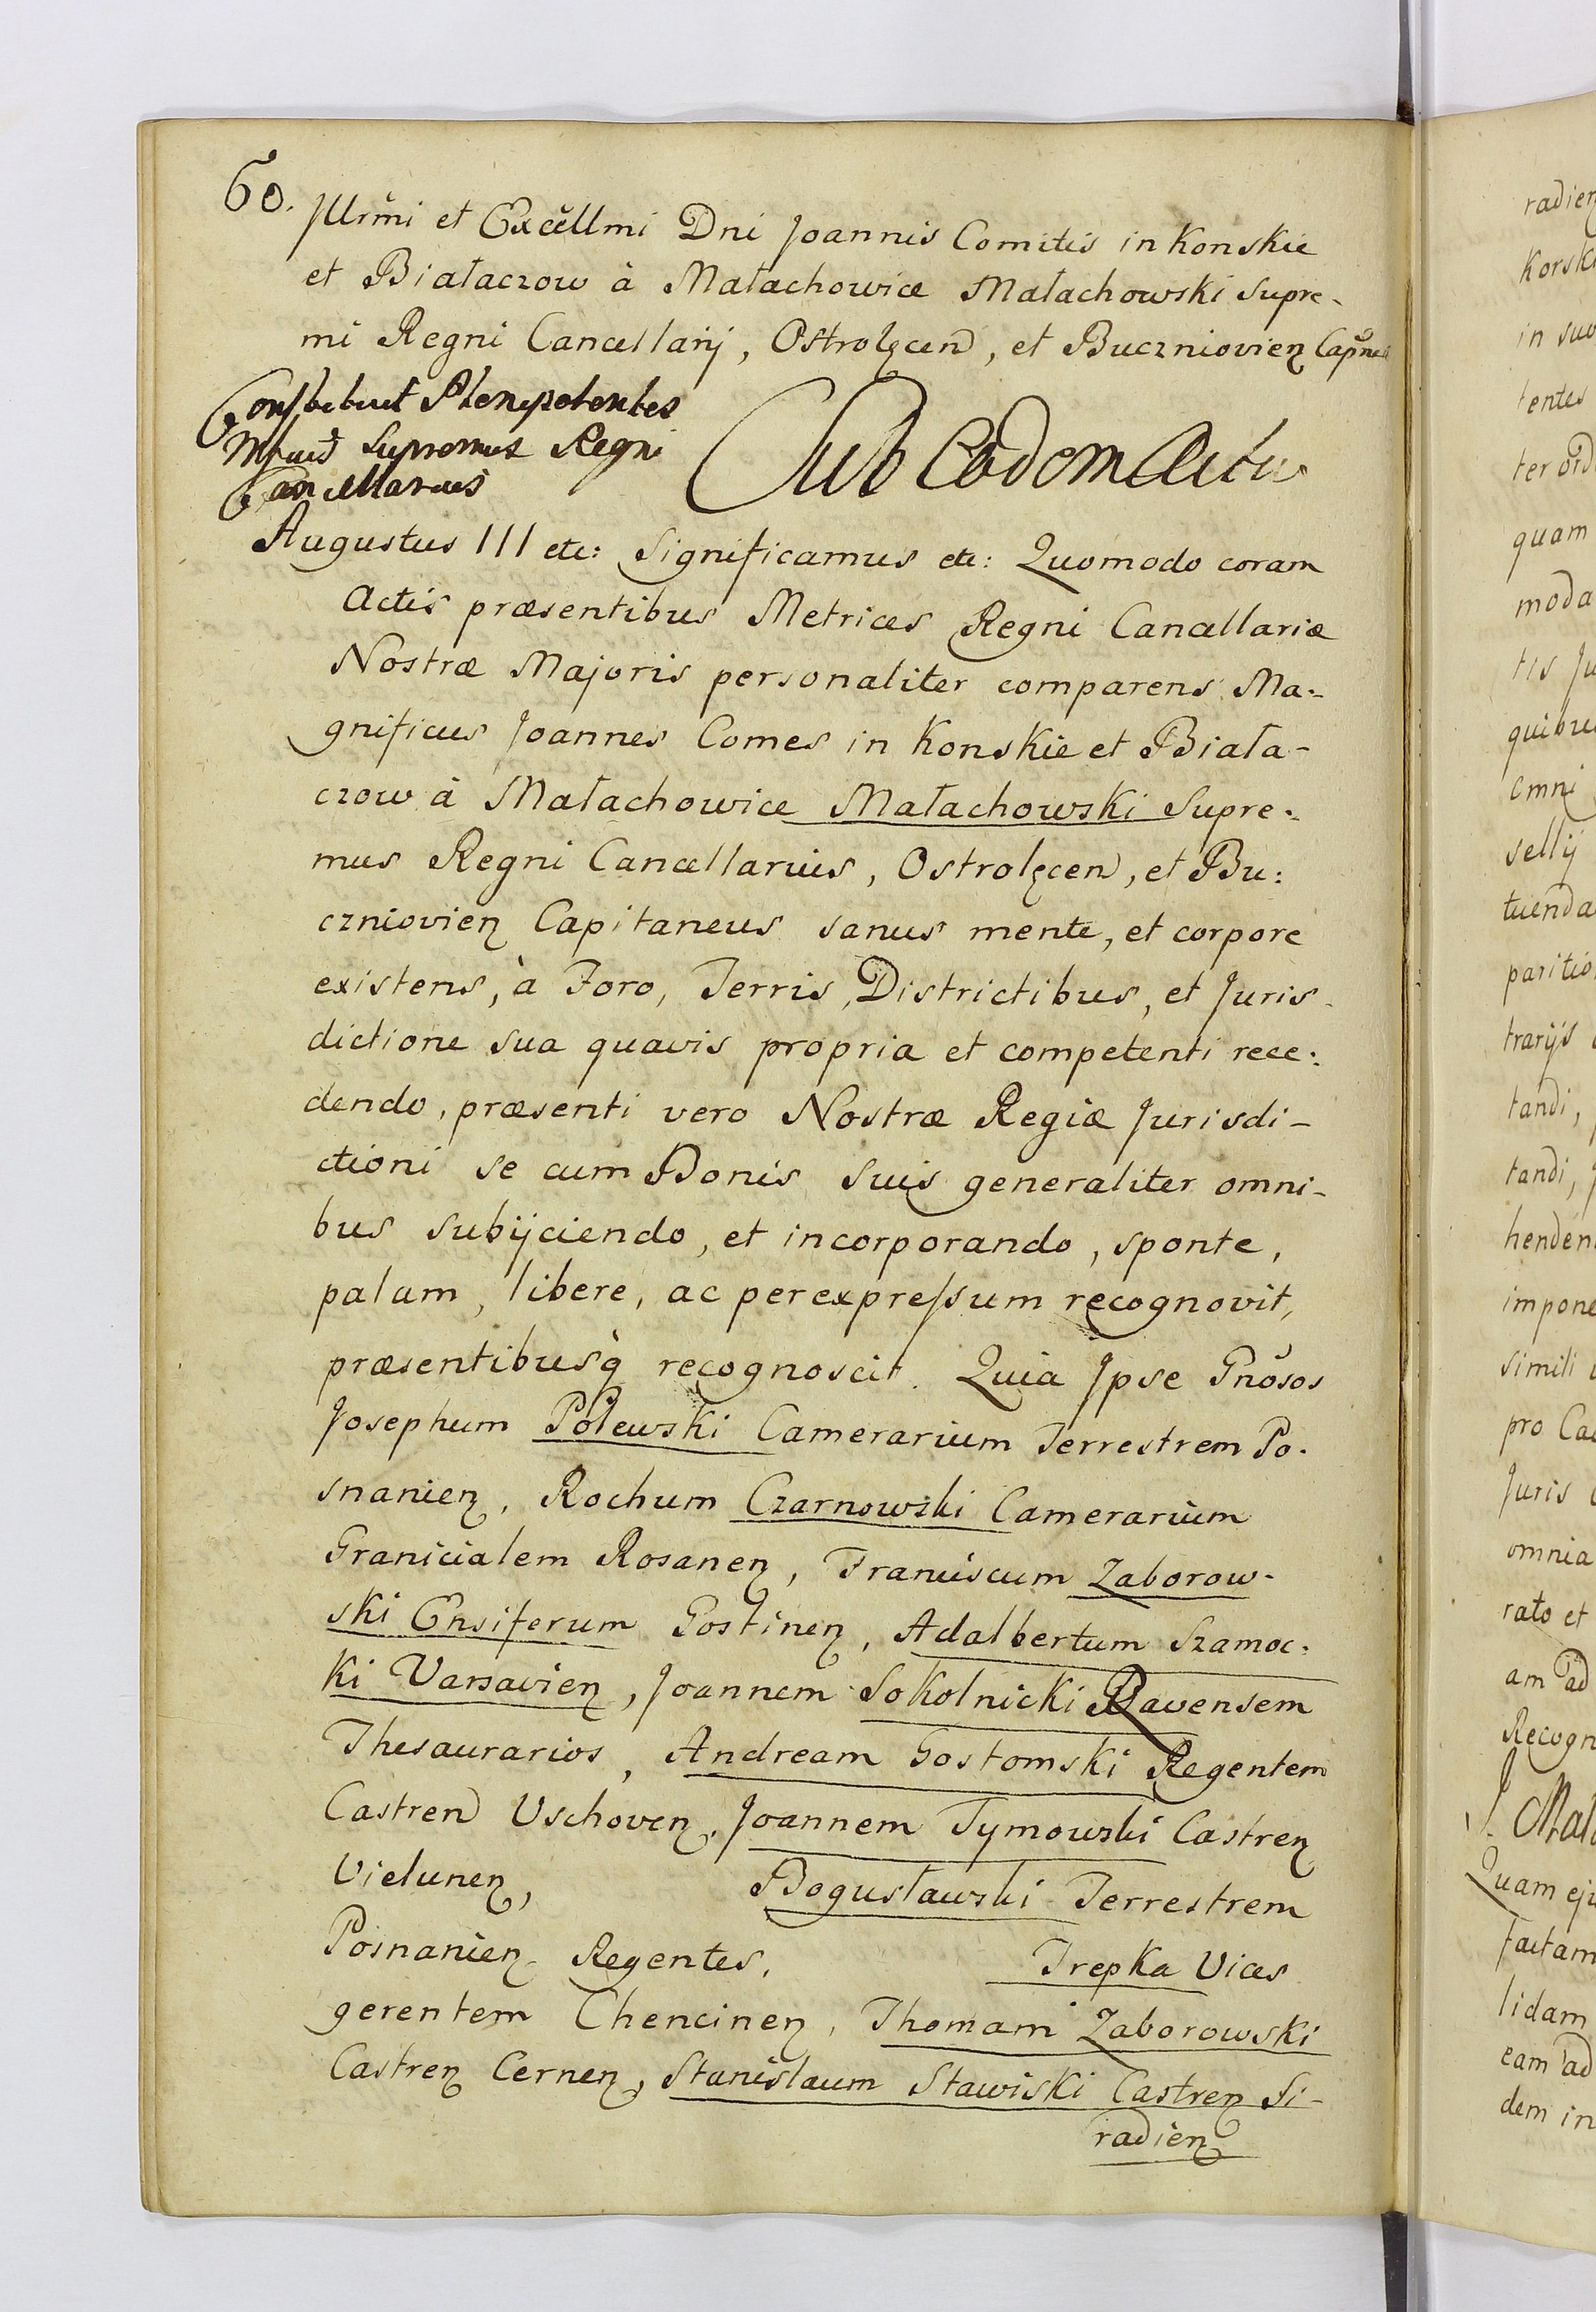 60.
Jllrm̃i et Excẽllmi Dni Joannis Comitis in Konskie
et Białaczow à Małachowice Małachowski Supre-
mi Regni Cancellarij, Ostrolęcen, et Buczniovien Capnei
Constituit Plenipotentes
Mfcus Supremus Regni
Cancellarius
Sub Eodem Actu
Augustus III etc: Significamus etc: Quomodo coram
Actis præsentibus Metrices Regni Cancellariæ
Nostræ Majoris personaliter comparens Ma-
gnificus Joannes Comes in Konskie et Biała-
czow à Małachowice Małachowski Supre-
mus Regni Cancellarius, Ostrolęcen, et Bu:
czniovien Capitaneus sanus mente, et corpore
existens, à Foro, Terris, Districtibus, et Juris-
dictione sua quavis propria et competenti rece:
dendo, præsenti vero Nostræ Regiæ Jurisdi-
ctioni se cum Bonis suis generaliter omni-
bus subijciendo, et incorporando, sponte,
palam, libere, ac per expressum recognovit,
præsentibusq̀ recognoscit. Quia Jpse Gnõsos
Josephum Polewski Camerarium Terrestrem Po-
snanien, Rochum Czarnowski Camerarium
Granicialem Rosanen, Franciscum Zaborow-
ski Ensiferum Gostinen, Adalbertum Szamoc-
ki Varsavien, Joannem Sokolnicki Ravensem
Thesaurarios, Andream Gostomski Regentem
Castren Uschoven, Joannem Tymowski Castren
Vielunen, Bogusławski Terrestrem
Posnanien Regentes, Trepka Vices
gerentem Chencinen, Thomam Zaborowski
Castren Cernen, Stanislaum Stawiski Castren Si-
radien
radien
Korski
in suo
tentes
ter ord
quam
moda
tis Ju
quibus
omni
sellij
tuenda
paritio
trarijs
tandi,
tandi,
henden
impone
simili
pro Ca
Juris
omnia
rato et
am ad
Recogn
J. Mała
Quam eju
factam
lidam
eam ad
dem in